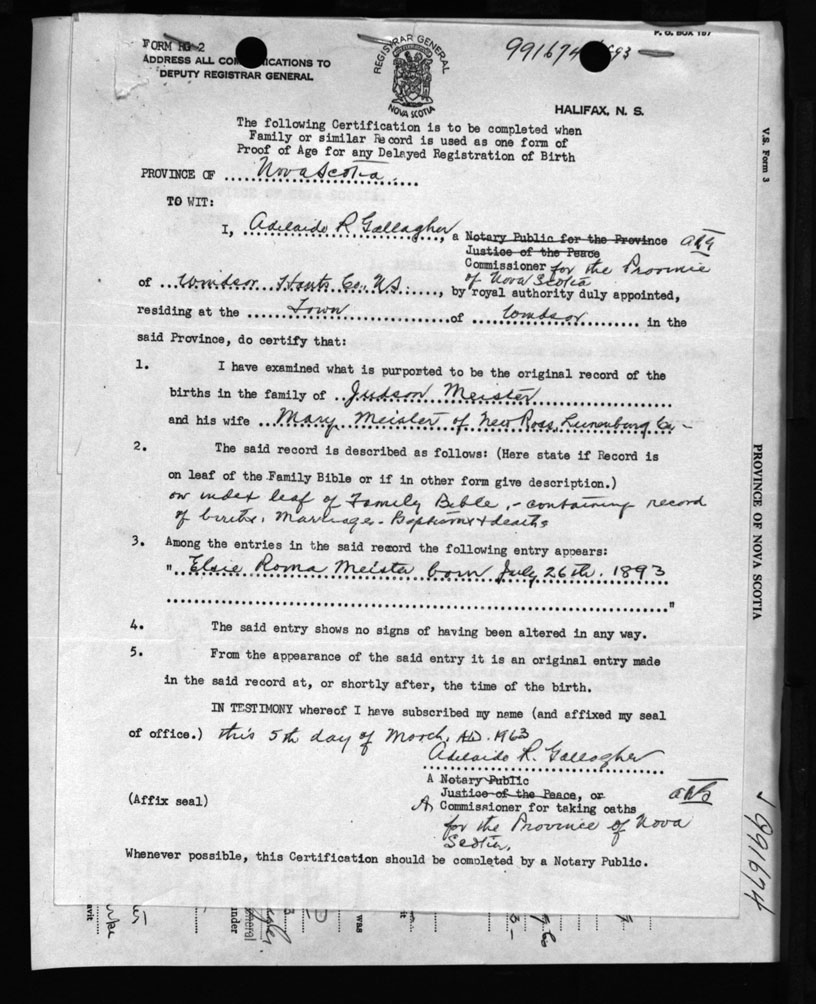 P. O. BOX 157
FORM RG-2
991674
893
ADDRESS ALL COMMUNICATIONS TO
DEPUTY REGISTRAR GENERAL
REGISTRAR GENERAL
NOVA SCOTIA
HALIFAX, N. S.
The following Certification is to be completed when
Family or similar Record is used as one form of
Proof of Age for any Delayed Registration of Birth
PROVINCE OF ....Nova Scotia.....
TO WIT:
I, Adelaide R Gallagher, a Notary Public for the Province
Justice of the Peace
Commissioner for the Province
of Nova Scotia
of ...Windsor Hants Co. N.S....., by royal authority duly appointed,
residing at the ......Town..................of ....Windsor......... in the
said Province, do certify that:
1. I have examined what is purported to be the original record of the
births in the family of ..Judson Meister....................
and his wife ..Mary Meister of New Ross, Lunenburg Co -
2. The said record is described as follows: (Here state if Record is
on leaf of the Family Bible or if in other form give description.)
on index leaf of Family Bible, - containing record
of births, Marriages - Baptisms + deaths
3. Among the entries in the said record the following entry appears:
"..Elsie Roma Meister born July 26th. 1893
"
4. The said entry shows no signs of having been altered in any way.
5. From the appearance of the said entry it is an original entry made
in the said record at, or shortly after, the time of the birth.
IN TESTIMONY whereof I have subscribed my name (and affixed my seal
of office.) this 5th day of March, A.D. 1963
Adelaide R. Gallagher
A Notary Public
Justice of the Peace, or
(Affix seal)
A Commissioner for taking oaths
for the Province of Nova
Scotia.
Whenever possible, this Certification should be completed by a Notary Public.
V.S. Form 3
PROVINCE OF NOVA SCOTIA
991674
avit
under
was
it